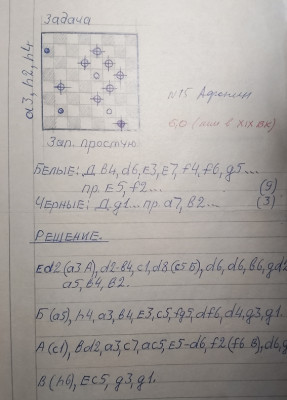 Задача
a3, h2, h4
N15 Афонин
Зап. простую
БЕЛЫЕ: Д. В4, d6, Е3, Е7, f4, f6, g5...
пр. Е5, f2... (9)
ЧЕРНЫЕ: Д. g1... пр. a7, В2... (3)
РЕШЕНИЕ.
Ed2 (a3 А), d2-В4, c1, d8 (c5 Б), d6, d6, В6, gd2
a5, В4, В2.
Б (a5), h4, a3, В4, Е3, c5, fg5, df6, d4, g3, g1.
А (c1), Вd2, a3, c7, ac5, Е5-d6, f2 (f6 В), d6, g
В (h6), Ec5, g3, g1.